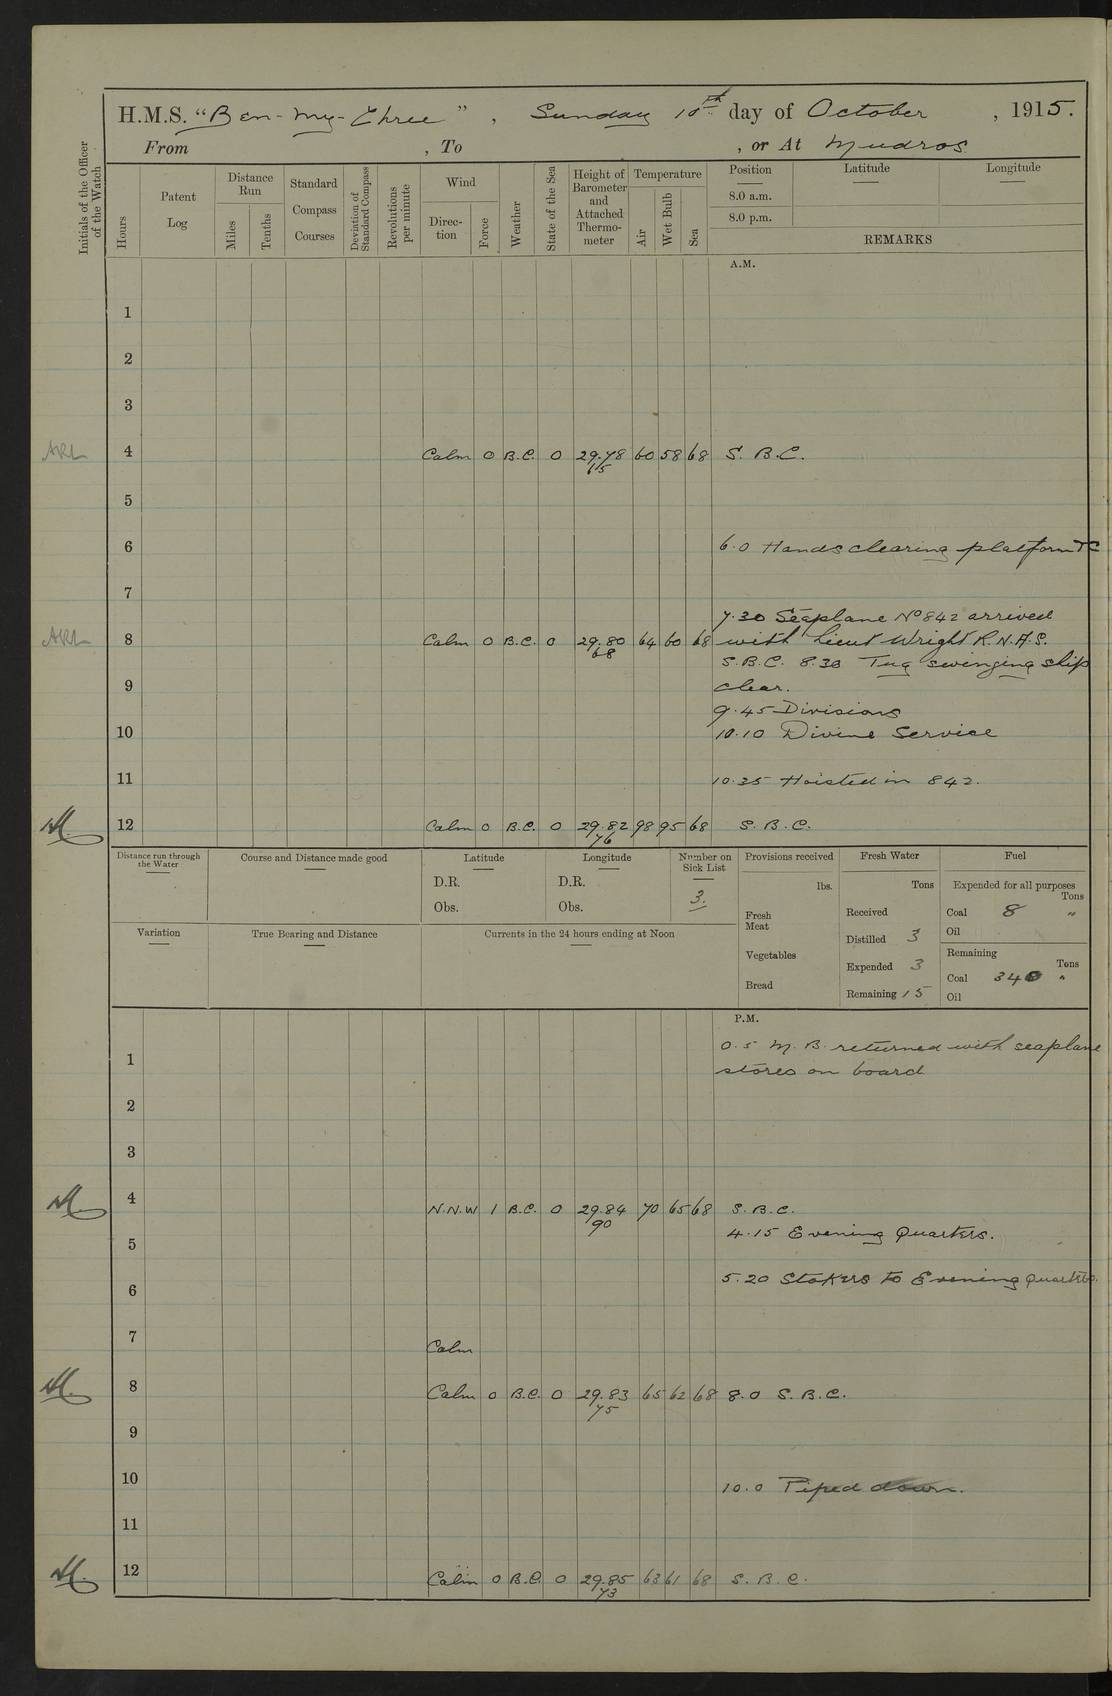 H.M.S. "Ben-My-Chree", Sunday 10th day of October, 1915.
From , To , or At Mudros
Initials of the Officer of the Watch
Hours
Patent Log
Distance Run
Miles
Tenths
Standard Compass Courses
Deviation of Standard Compass
Revolutions per minute
Wind
Direction
Force
Weather
State of the Sea
Height of Barometer and Attached Thermometer
Temperature
Air
Wet Bulb
Sea
Position Latitude Longitude
8.0 a.m.
8.0 p.m.
REMARKS
A.M.
1
2
3
ARL 4 Calm 0 B.C. 0 29.78 60 58 68 S. B.C.
65
5
6 6.0 Hands clearing platform &c
7
7.30 Seaplane No 842 arrived
ARL 8 Calm 0 B.C. 0 29.80 64 60 68 with Lieut Wright R.N.A.S.
68
S.B.C. 8.30 Tug swinging ship
9 clear.
9.45 Divisions
10 10.10 Divine Service
11 10.35 Hoisted in 842.
12 Calm 0 B.C. 0 29.82 98 95 68 S. B. C.
76
Distance run through the Water
Course and Distance made good
Latitude
D.R.
Obs.
Longitude
D.R.
Obs.
Number on Sick List
3.
Provisions received
lbs.
Fresh Meat
Vegetables
Bread
Fresh Water
Tons
Received
Distilled 3
Expended 3
Remaining 15
Fuel
Expended for all purposes
Tons
Coal 8 "
Oil
Remaining
Tons
Coal 340 "
Oil
Variation
True Bearing and Distance
Currents in the 24 hours ending at Noon
P.M.
0.5 M.B. returned with seaplane
1 stores on board
2
3
4 N.N.W 1 B.C. 0 29.84 70 65 68 S. B. C.
90
4.15 Evening Quarters.
5
5.20 Stokers to Evening Quarters.
6
7 Calm
8 Calm 0 B.C. 0 29.83 65 62 68 8.0 S. B. C.
75
9
10 10.0 Piped down.
11
12 Calm 0 B.C. 0 29.85 63 61 68 S. B. C.
73